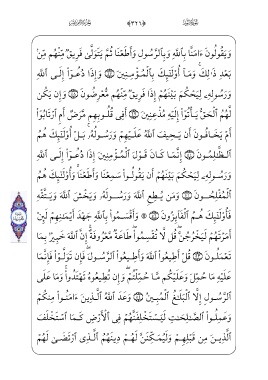 وَيَقُولُونَ ءَامَنَّا بِٱللَّهِ وَبِٱلرَّسُولِ وَأَطَعْنَا ثُمَّ يَتَوَلَّىٰ فَرِيقٌ مِّنْهُم مِّنۢ
بَعْدِ ذَٰلِكَ وَمَآ أُو۟لَٰٓئِكَ بِٱلْمُؤْمِنِينَ وَإِذَا دُعُوٓا۟ إِلَى ٱللَّهِ
وَرَسُولِهِۦ لِيَحْكُمَ بَيْنَهُمْ إِذَا فَرِيقٌ مِّنْهُم مُّعْرِضُونَ وَإِن يَكُن
لَّهُمُ ٱلْحَقُّ يَأْتُوٓا۟ إِلَيْهِ مُذْعِنِينَ أَفِى قُلُوبِهِم مَّرَضٌ أَمِ ٱرْتَابُوٓا۟
أَمْ يَخَافُونَ أَن يَحِيفَ ٱللَّهُ عَلَيْهِمْ وَرَسُولُهُۥ بَلْ أُو۟لَٰٓئِكَ هُمُ
ٱلظَّٰلِمُونَ إِنَّمَا كَانَ قَوْلَ ٱلْمُؤْمِنِينَ إِذَا دُعُوٓا۟ إِلَى ٱللَّهِ
وَرَسُولِهِۦ لِيَحْكُمَ بَيْنَهُمْ أَن يَقُولُوا۟ سَمِعْنَا وَأَطَعْنَا وَأُو۟لَٰٓئِكَ هُمُ
ٱلْمُفْلِحُونَ وَمَن يُطِعِ ٱللَّهَ وَرَسُولَهُۥ وَيَخْشَ ٱللَّهَ وَيَتَّقْهِ
فَأُو۟لَٰٓئِكَ هُمُ ٱلْفَآئِزُونَ ۞ وَأَقْسَمُوا۟ بِٱللَّهِ جَهْدَ أَيْمَٰنِهِمْ لَئِنْ
أَمَرْتَهُمْ لَيَخْرُجُنَّ قُل لَّا تُقْسِمُوا۟ طَاعَةٌ مَّعْرُوفَةٌ إِنَّ ٱللَّهَ خَبِيرٌۢ بِمَا
تَعْمَلُونَ قُلْ أَطِيعُوا۟ ٱللَّهَ وَأَطِيعُوا۟ ٱلرَّسُولَ فَإِن تَوَلَّوْا۟ فَإِنَّمَا
عَلَيْهِ مَا حُمِّلَ وَعَلَيْكُم مَّا حُمِّلْتُمْ وَإِن تُطِيعُوهُ تَهْتَدُوا۟ وَمَا عَلَى
ٱلرَّسُولِ إِلَّا ٱلْبَلَٰغُ ٱلْمُبِينُ وَعَدَ ٱللَّهُ ٱلَّذِينَ ءَامَنُوا۟ مِنكُمْ
وَعَمِلُوا۟ ٱلصَّٰلِحَٰتِ لَيَسْتَخْلِفَنَّهُمْ فِى ٱلْأَرْضِ كَمَا ٱسْتَخْلَفَ
ٱلَّذِينَ مِن قَبْلِهِمْ وَلَيُمَكِّنَنَّ لَهُمْ دِينَهُمُ ٱلَّذِى ٱرْتَضَىٰ لَهُمْ